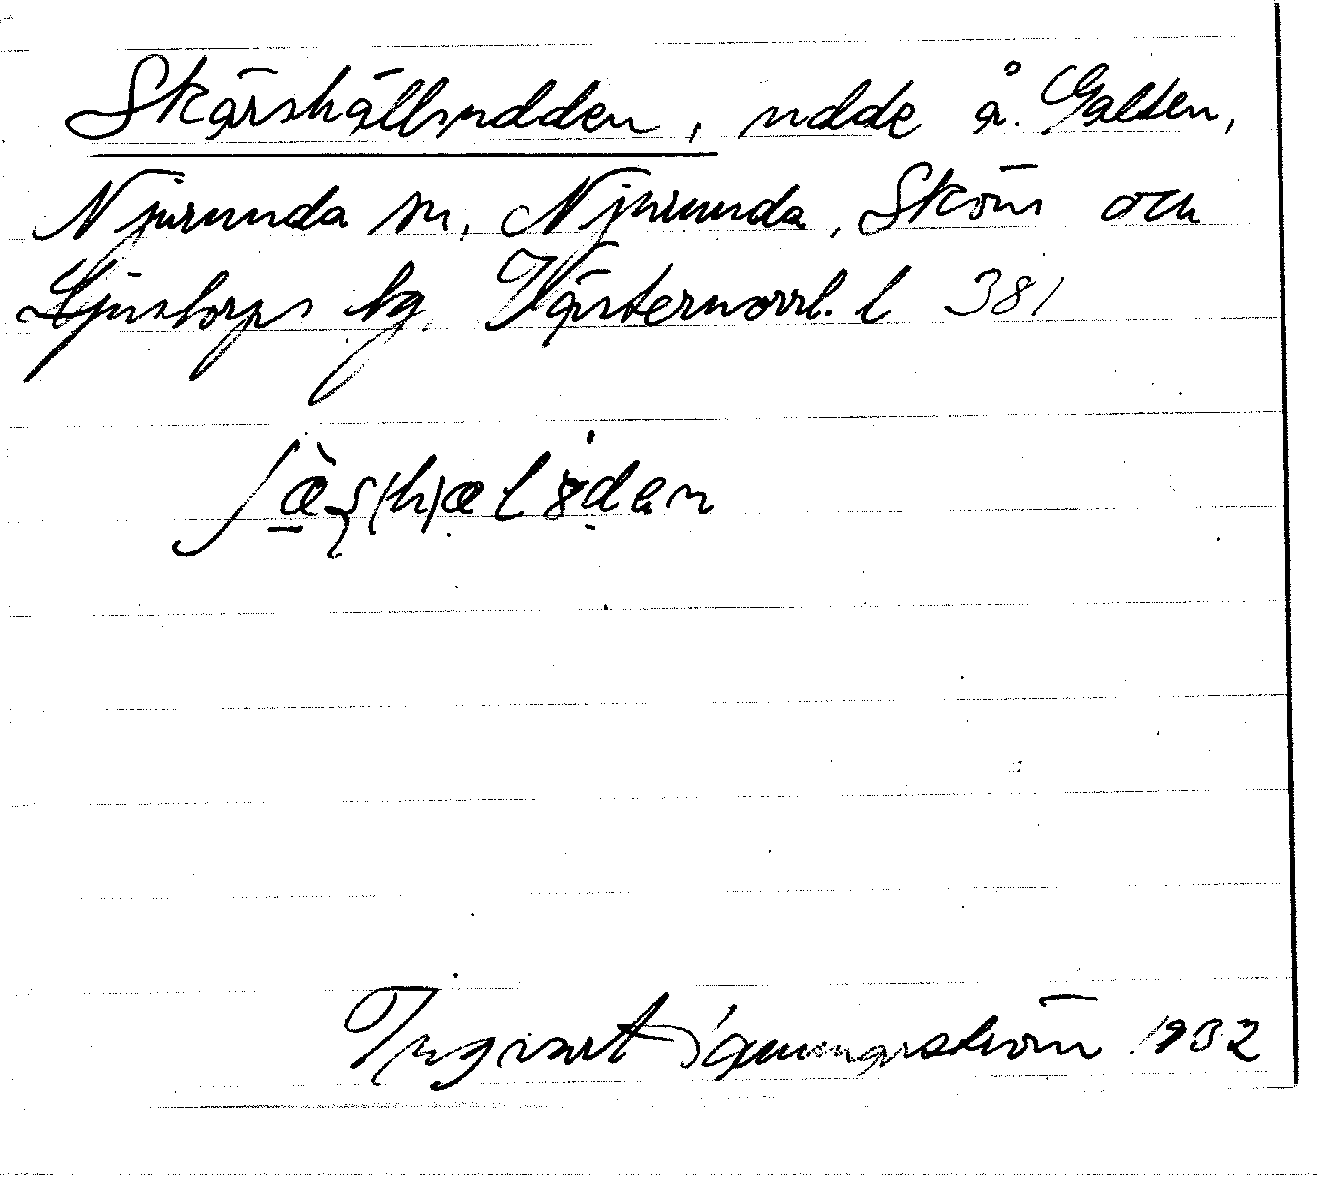 Skärshällsudden, udde å. Galten,
Njurunda sn, Njurunda, Sköns och
Ljustorps tg. Västernorrl. l 381
ʃæ̀ʂ(h)æl
1932